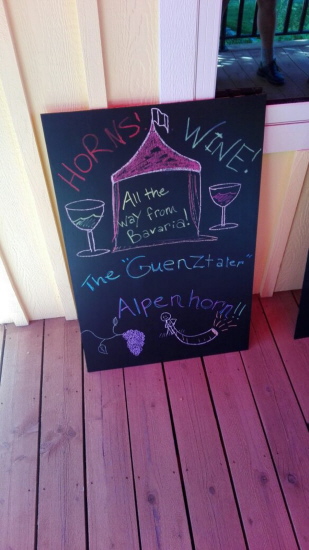 HORNS! WINE!
All the
way from
Bavaria!
The "Guenztaler"
Alpenhorn!!